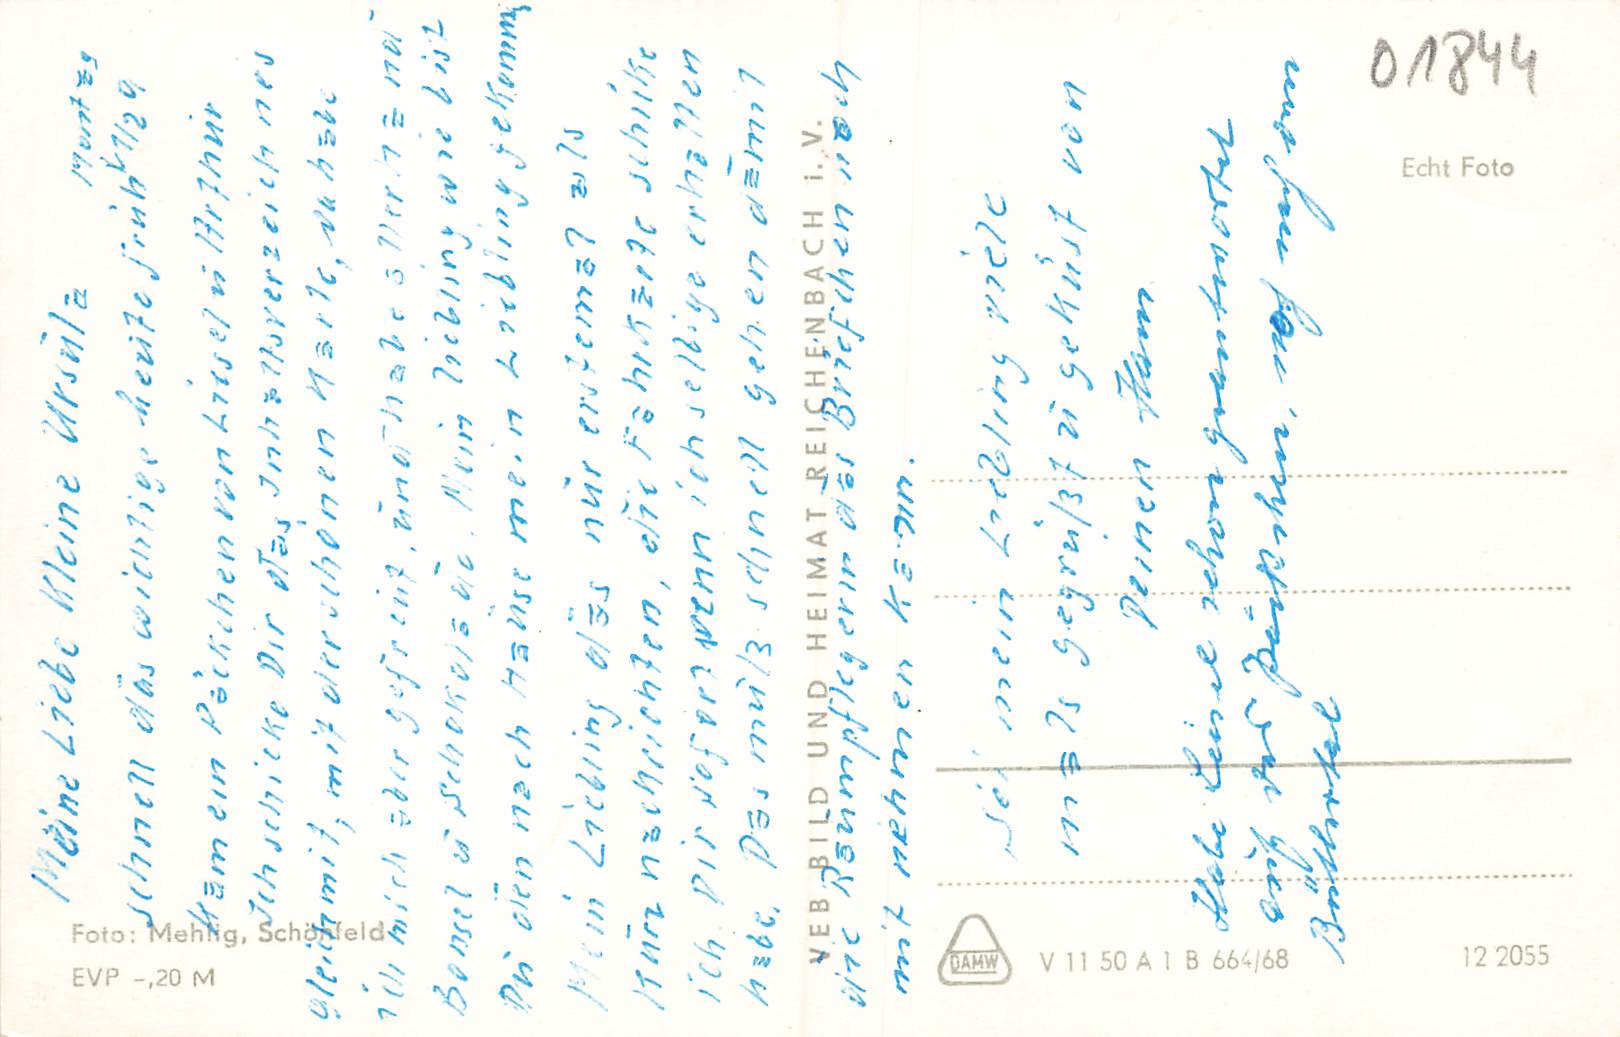 Montag
Meine Liebe Kleine Ursula
schnell das wichtige heute früh 1/29
Kam ein Päckchen von Liesel u Arthur
Ich schicke Dir das Inhaltsverzeichnes
gleich mit, mit der schönen Karte, ruhabe
ich mich aber gefreut, und habe allerhand
Bonsel u Schokolade. Mein liebling wie bist
Du den nach Hause mein Liebling gekommen
Mein Liebling das nur erstemal als
kurz nachrichten, die Fahrkarte schike
ich Dir sofort wenn ich selbige erhalten
habe. Das muß schnell gehen damit
die Raumpflegerin das Briefchen noch
mit nehmen kann.
Sei mein Liebling viele
mals gegrüßt u geküst von
Deinen Hans
Habe keine schon geantwortet
auch das Päckchen, und
Bücher
01844
Echt Foto
VEB BILD UND HEIMAT REICHENBACH i. V.
Foto: Mehlig, Schönfeld
EVP -,20 M
DAMW
V 11 50 A 1 B 664/68
12 2055